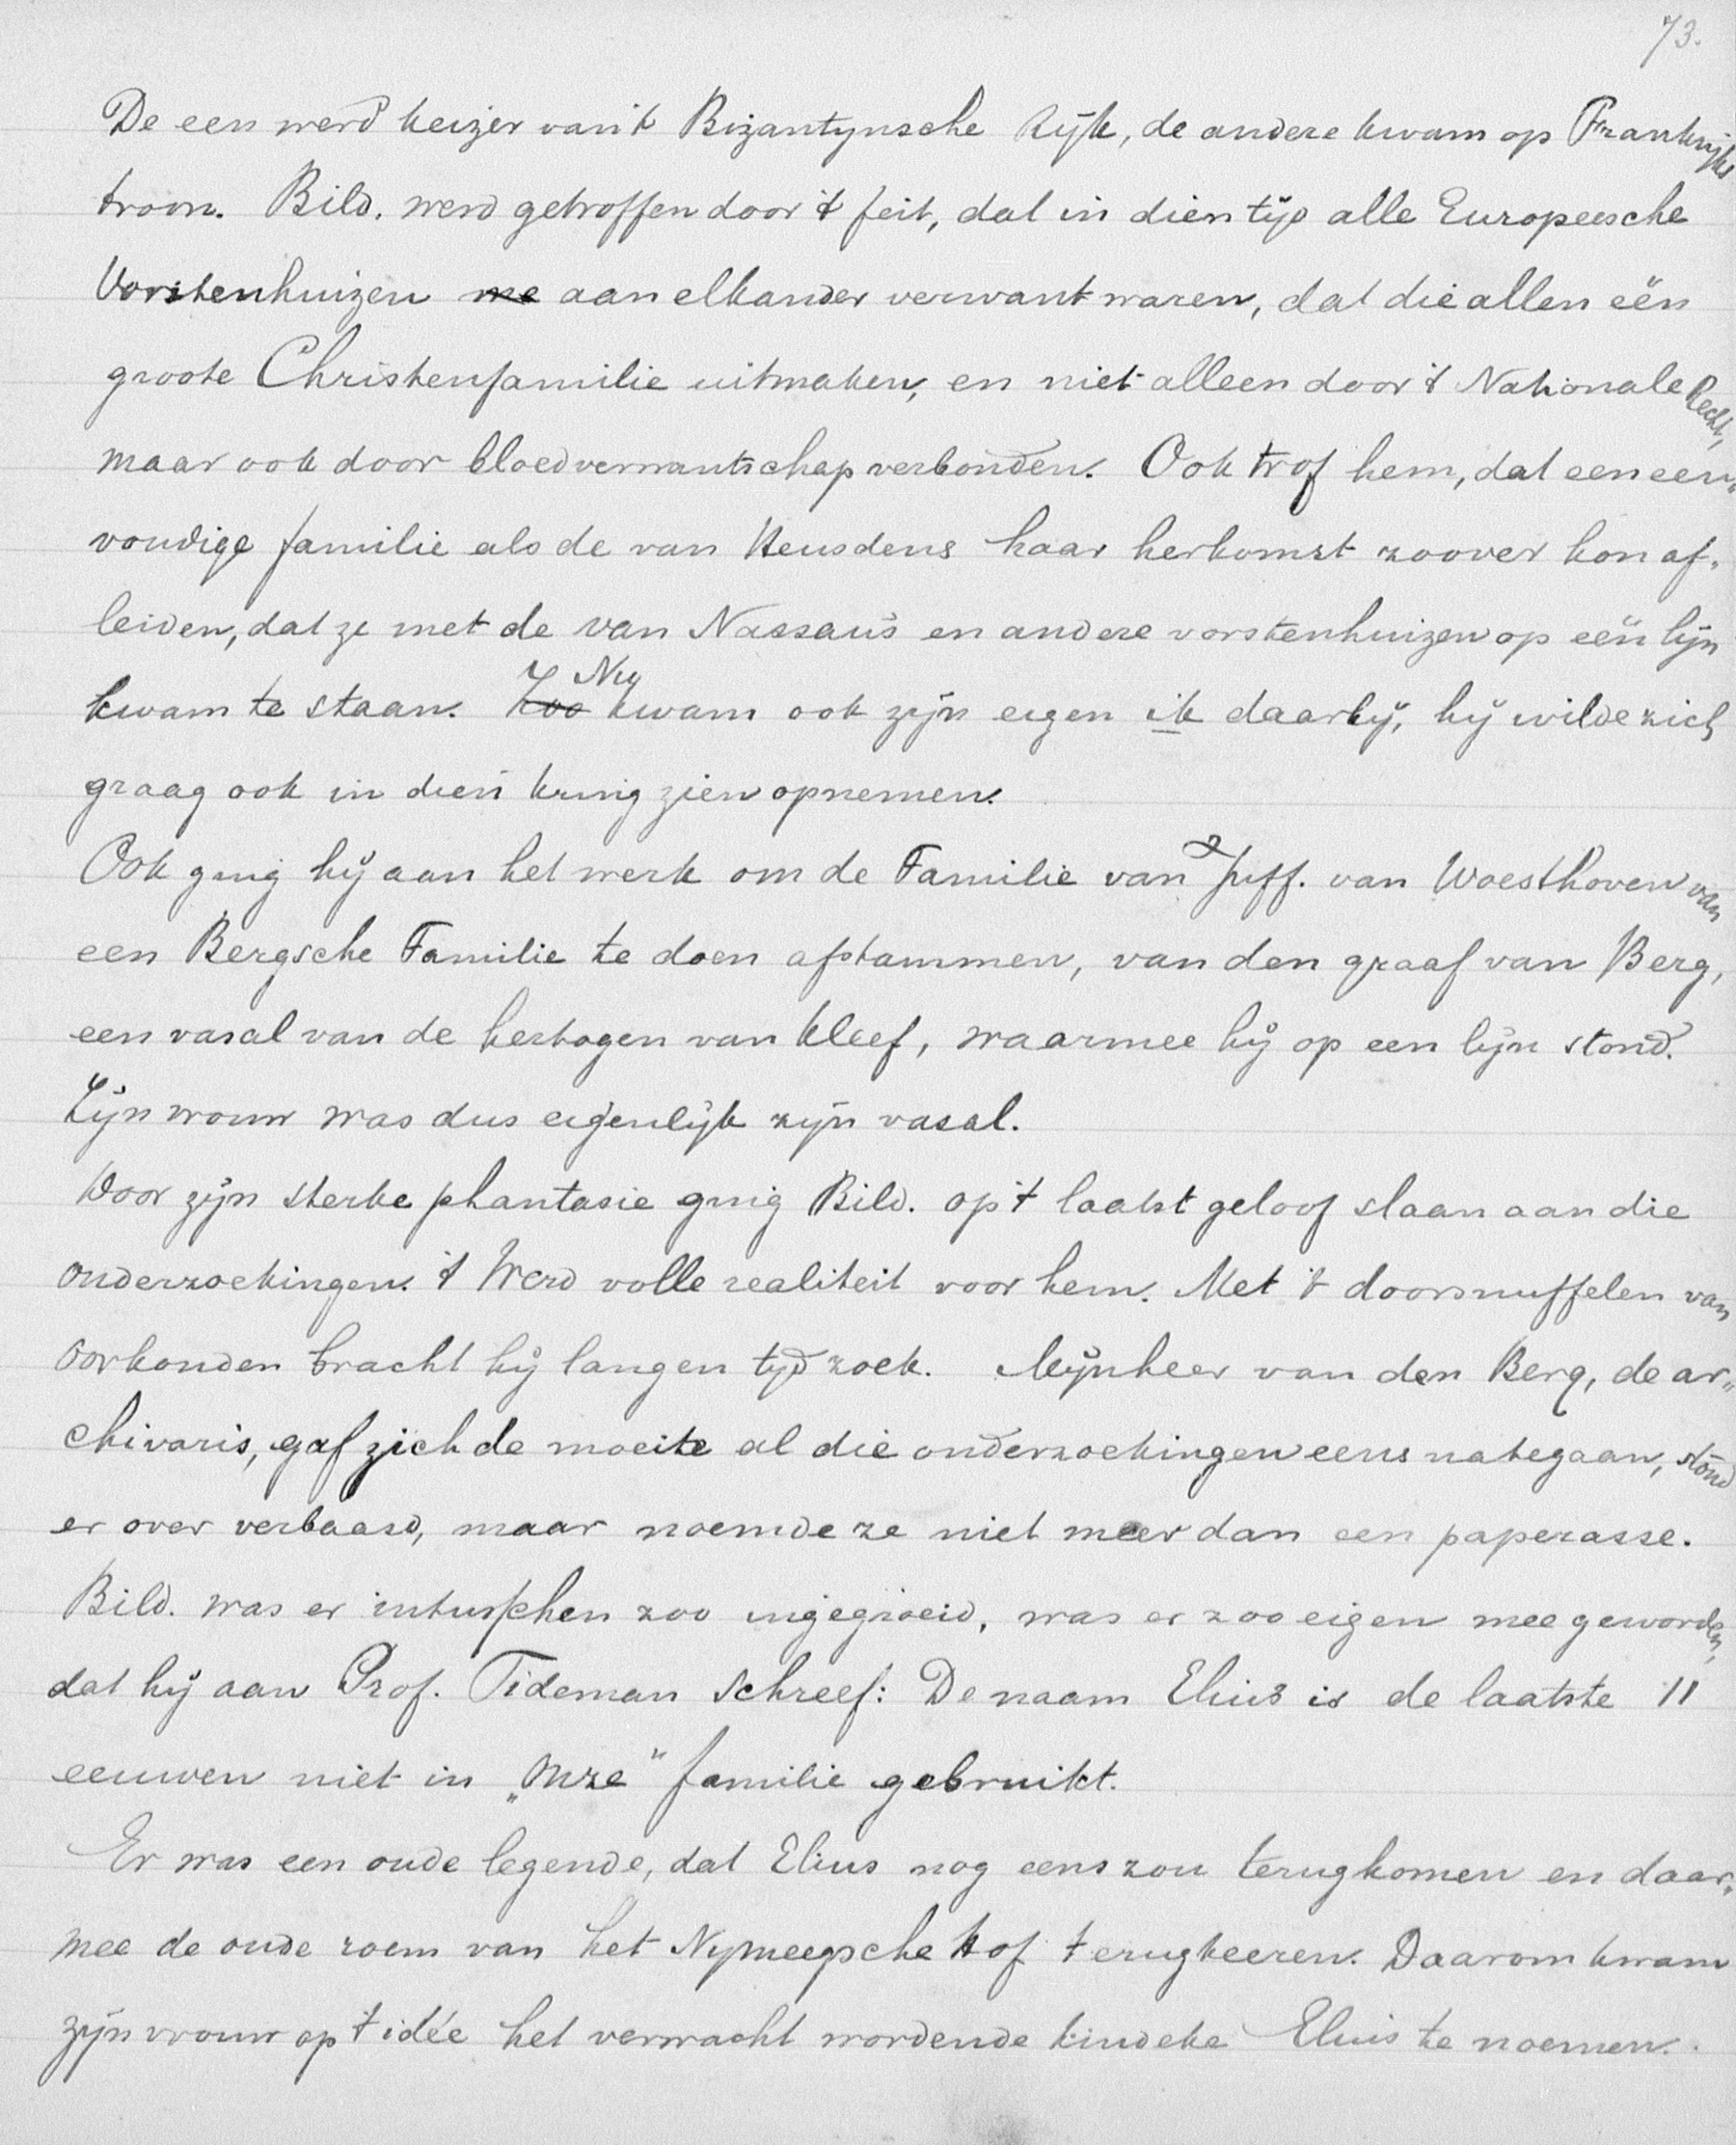 73.
De een werd keizer van 't Bizantynsche Rijk, de andere kwam op Frankrijks
troon. Bild. werd getroffen door 't feit, dat in dien tijd alle Europeesche
Vorstenhuizen me aan elkander verwant waren, dat die allen één
groote Christenfamilie uitmaken, en niet alleen door 't Nationale Recht,
maar ook door bloedverwantschap verbonden. Ook trof hem, dat een een-
voudige familie als de van Heusdens haar herkomst zoover kon af-
leiden, dat ze met de van Nassau's en andere vorstenhuizen op één lijn
kwam te staan. Zoo Nu kwam ook zijn eigen ik daarbij, hij wilde zich
graag ook in dien kring zien opnemen.
Ook ging hij aan het werk om de Familie van Juff. van Woesthoven van
een Bergsche Familie te doen afstammen, van den graaf van Berg,
een vasal van de hertogen van Kleef, waarmee hij op een lijn stond.
Zijn vrouw was dus eigenlijk zijn vasal.
Door zijn sterke phantasie ging Bild. op 't laatst geloof slaan aan die
onderzoekingen. 't Werd volle realiteit voor hem. Met 't doorsnuffelen van
oorkonden bracht hij langen tijd zoek. Mijnheer van den Berg, de ar-
chivaris, gaf zich de moeite al die onderzoekingen eens nategaan, stond
er over verbaasd, maar noemde ze niet meer dan een paperasse.
Bild. was er intusschen zoo ingegroeid, was er zoo eigen mee geworden,
dat hij aan Prof. Tideman schreef: De naam Elius is de laatste 11
eeuwen niet in „onze" familie gebruikt.
Er was een oude legende, dat Elius nog eens zou terugkomen en daar-
mee de oude roem van het Nymeegsche Hof terugkeeren. Daarom kwam
zijn vrouw op 't idée het verwacht wordende kindeke Elius te noemen.